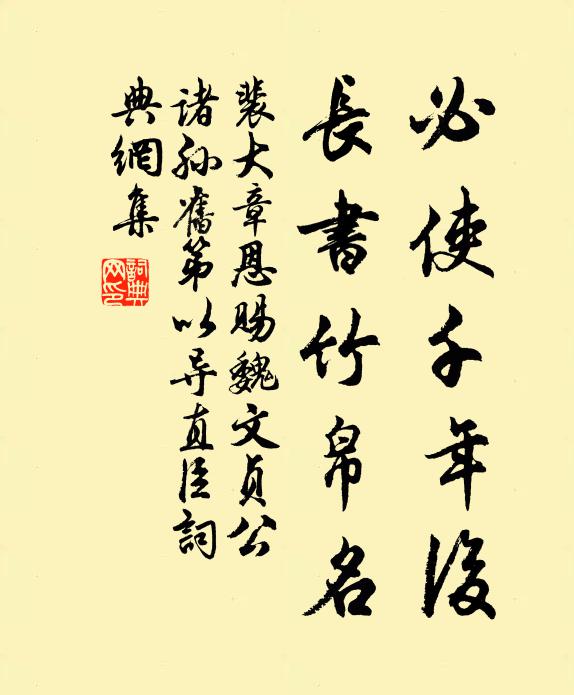 必使千年後
長書竹帛名
裴大章恩賜魏文貞公
諸孫舊第以导直臣詞
典網集
詞典網印